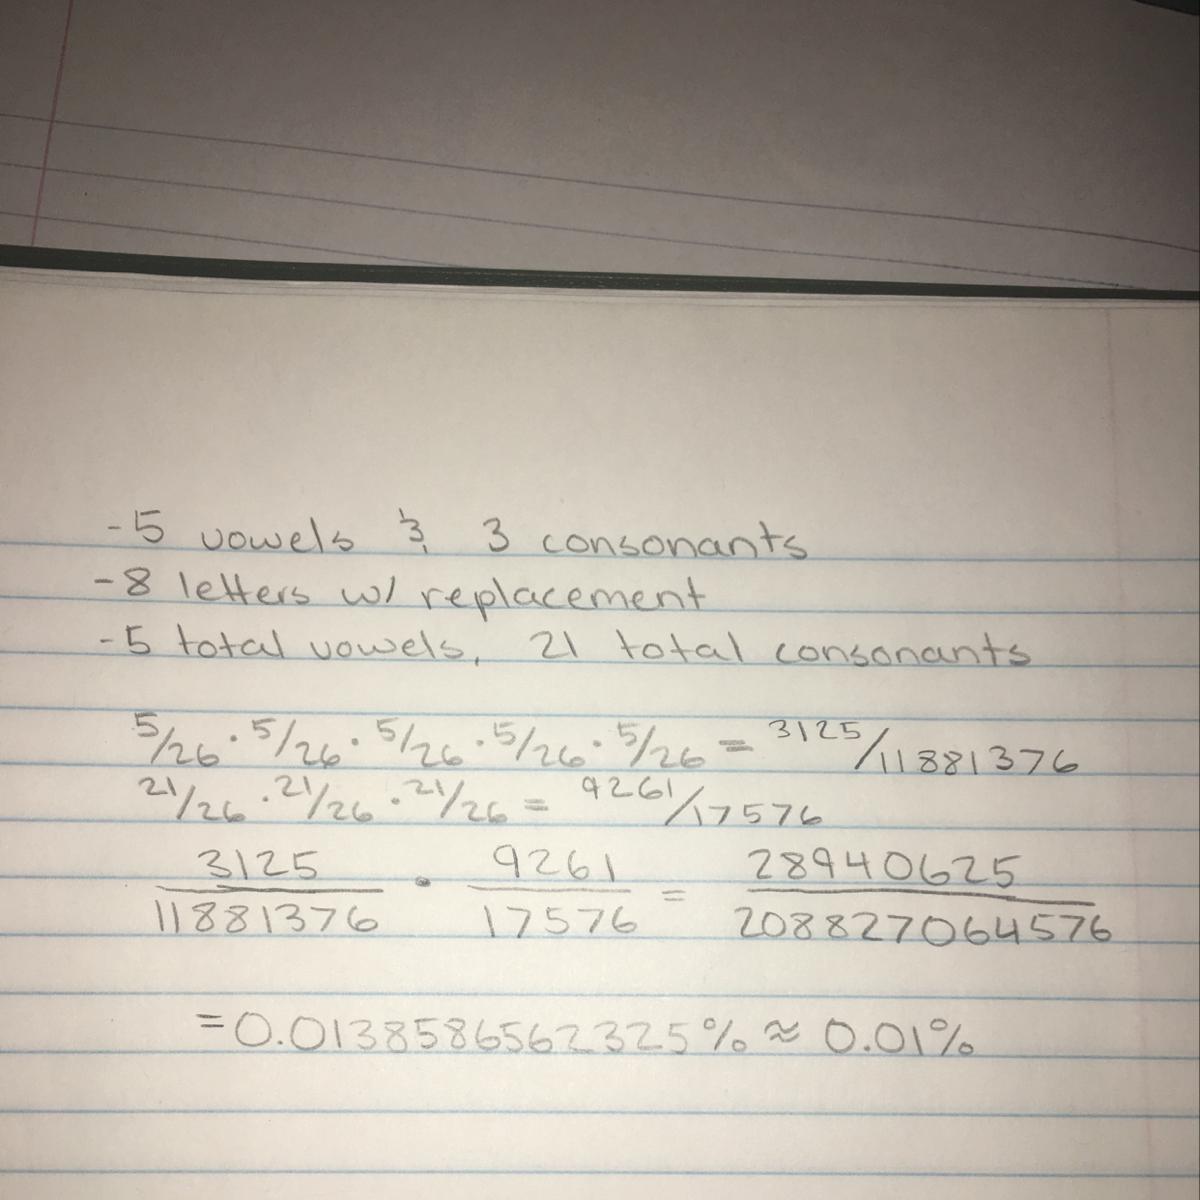 -5 vowels & 3 consonants
-8 letters w/ replacement
-5 total vowels, 21 total consonants
5/26 · 5/26 · 5/26 · 5/26 · 5/26 = 3125/11881376
21/26 · 21/26 · 21/26 = 9261/17576
3125/11881376 · 9261/17576 = 28940625/208827064576
=0.0138586562325% ≈ 0.01%